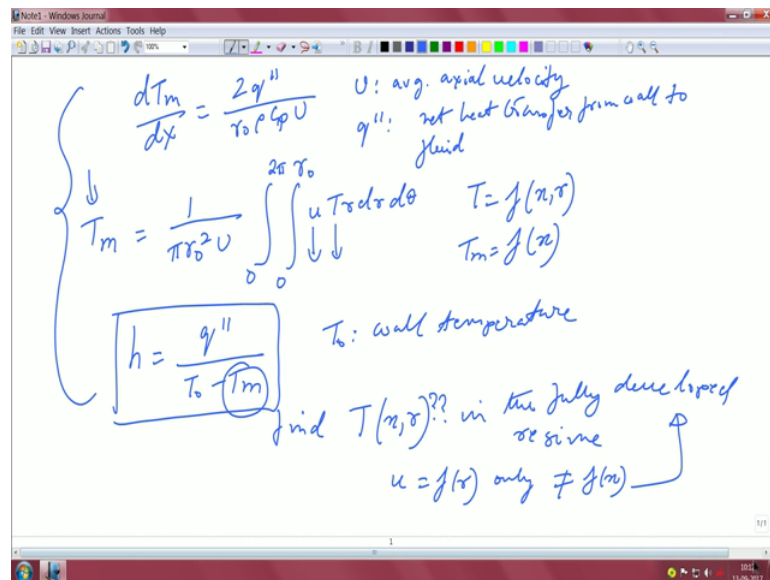 Note1 - Windows Journal
File Edit View Insert Actions Tools Help
100%
dTm/dx = 2q''/r₀ρCpU
U: avg. axial velocity
q'': net heat transfer from wall to fluid
Tm = 1/πr₀²U ∫₀^2π ∫₀^r₀ u T r dr dθ
T = f(x,r)
Tm = f(x)
h = q''/T₀ - Tm
T₀: wall temperature
find T(x,r)?? in the fully developed
resime
u = f(r) only ≠ f(x)
1/1
1
10:12
13-09-2017